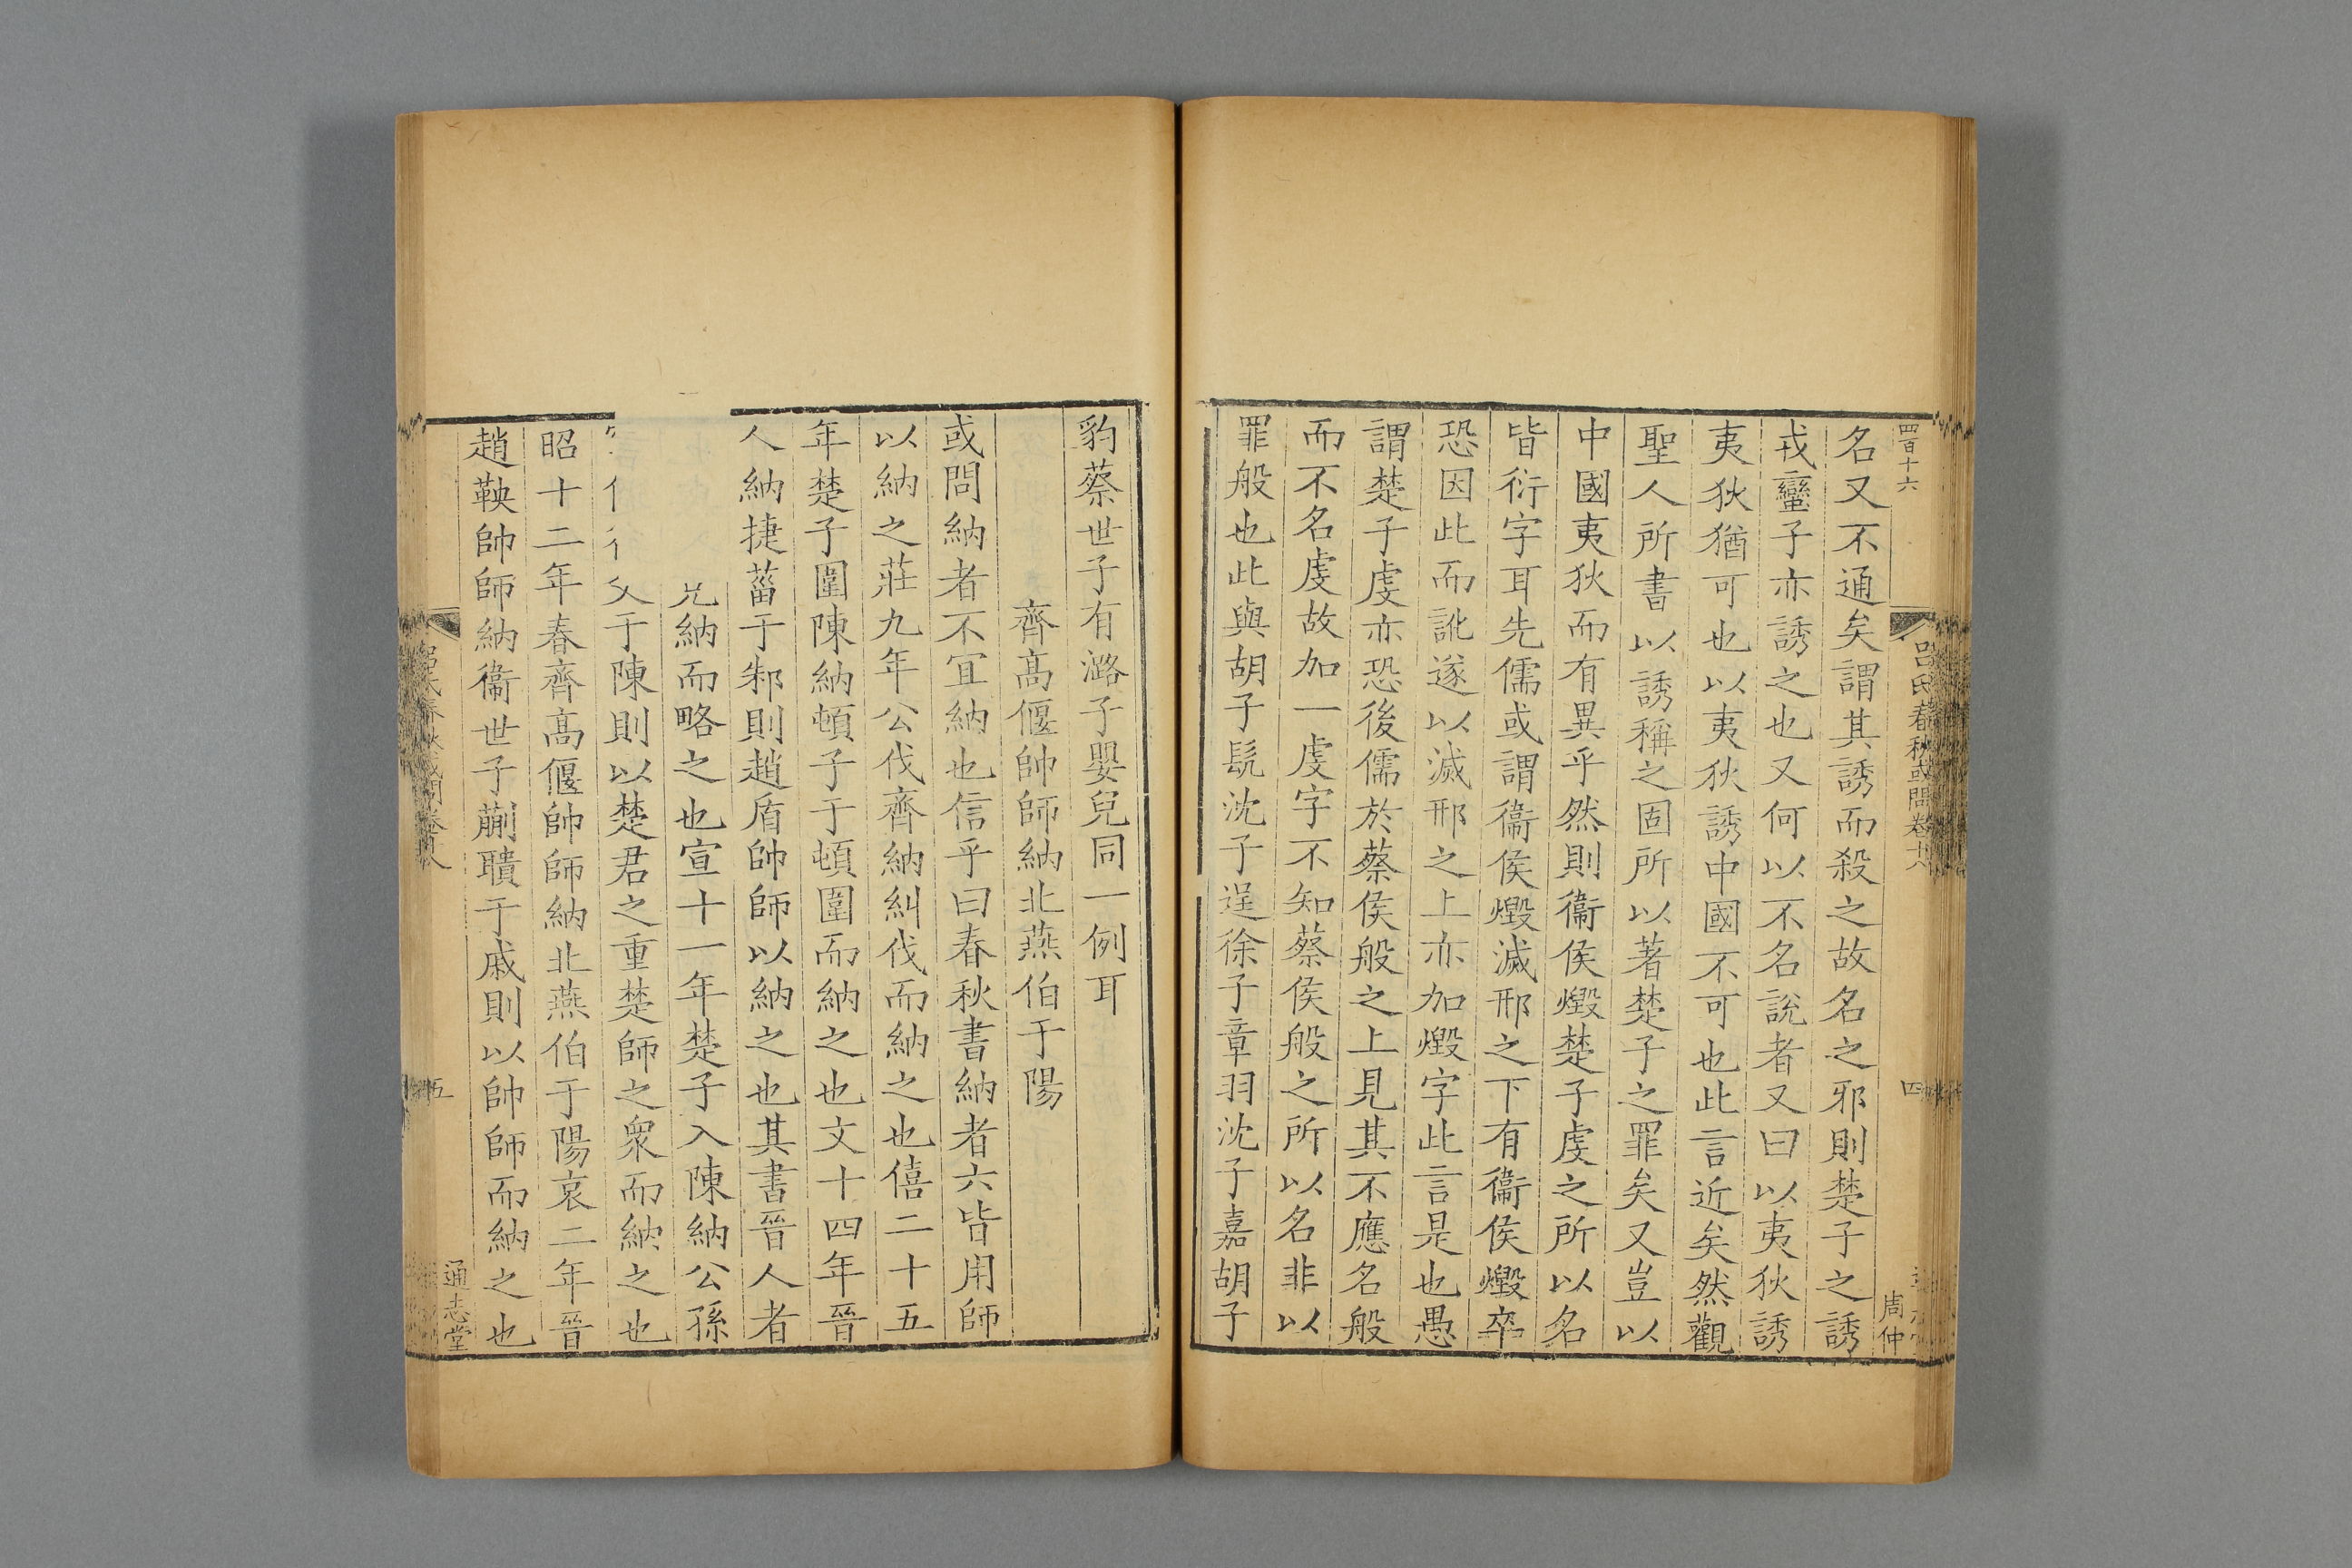 四百十六
呂氏春秋或問卷十八
四
周仲
名又不通矣謂其誘而殺之故名之邪則楚子之誘
戎蠻子亦誘之也又何以不名說者又曰以夷狄誘
夷狄猶可也以夷狄誘中國不可也此言近矣然觀
聖人所書以誘稱之固所以著楚子之罪矣又豈以
中國夷狄而有異乎然則衞侯燬楚子虔之所以名
皆衍字耳先儒或謂衞侯燬滅邢之下有衞侯燬卒
恐因此而訛遂以滅邢之上亦加燬字此言是也愚
謂楚子虔亦恐後儒於蔡侯般之上見其不應名般
而不名虔故加一虔字不知蔡侯般之所以名非以
罪般也此與胡子髡沈子逞徐子章羽沈子嘉胡子
豹蔡世子有潞子嬰兒同一例耳
齊高偃帥師納北燕伯于陽
或問納者不宜納也信乎曰春秋書納者六皆用師
以納之莊九年公伐齊納糾伐而納之也僖二十五
年楚子圍陳納頓子于頓圍而納之也文十四年晉
人納捷菑于邾則趙盾帥師以納之也其書晉人者
納而略之也宣十一年楚子入陳納公孫
于陳則以楚君之重楚師之衆而納之也
昭十二年春齊高偃帥師納北燕伯于陽哀二年晉
趙鞅帥師納衞世子蒯聵于戚則以帥師而納之也
呂氏春秋或問卷十八
五
通志堂